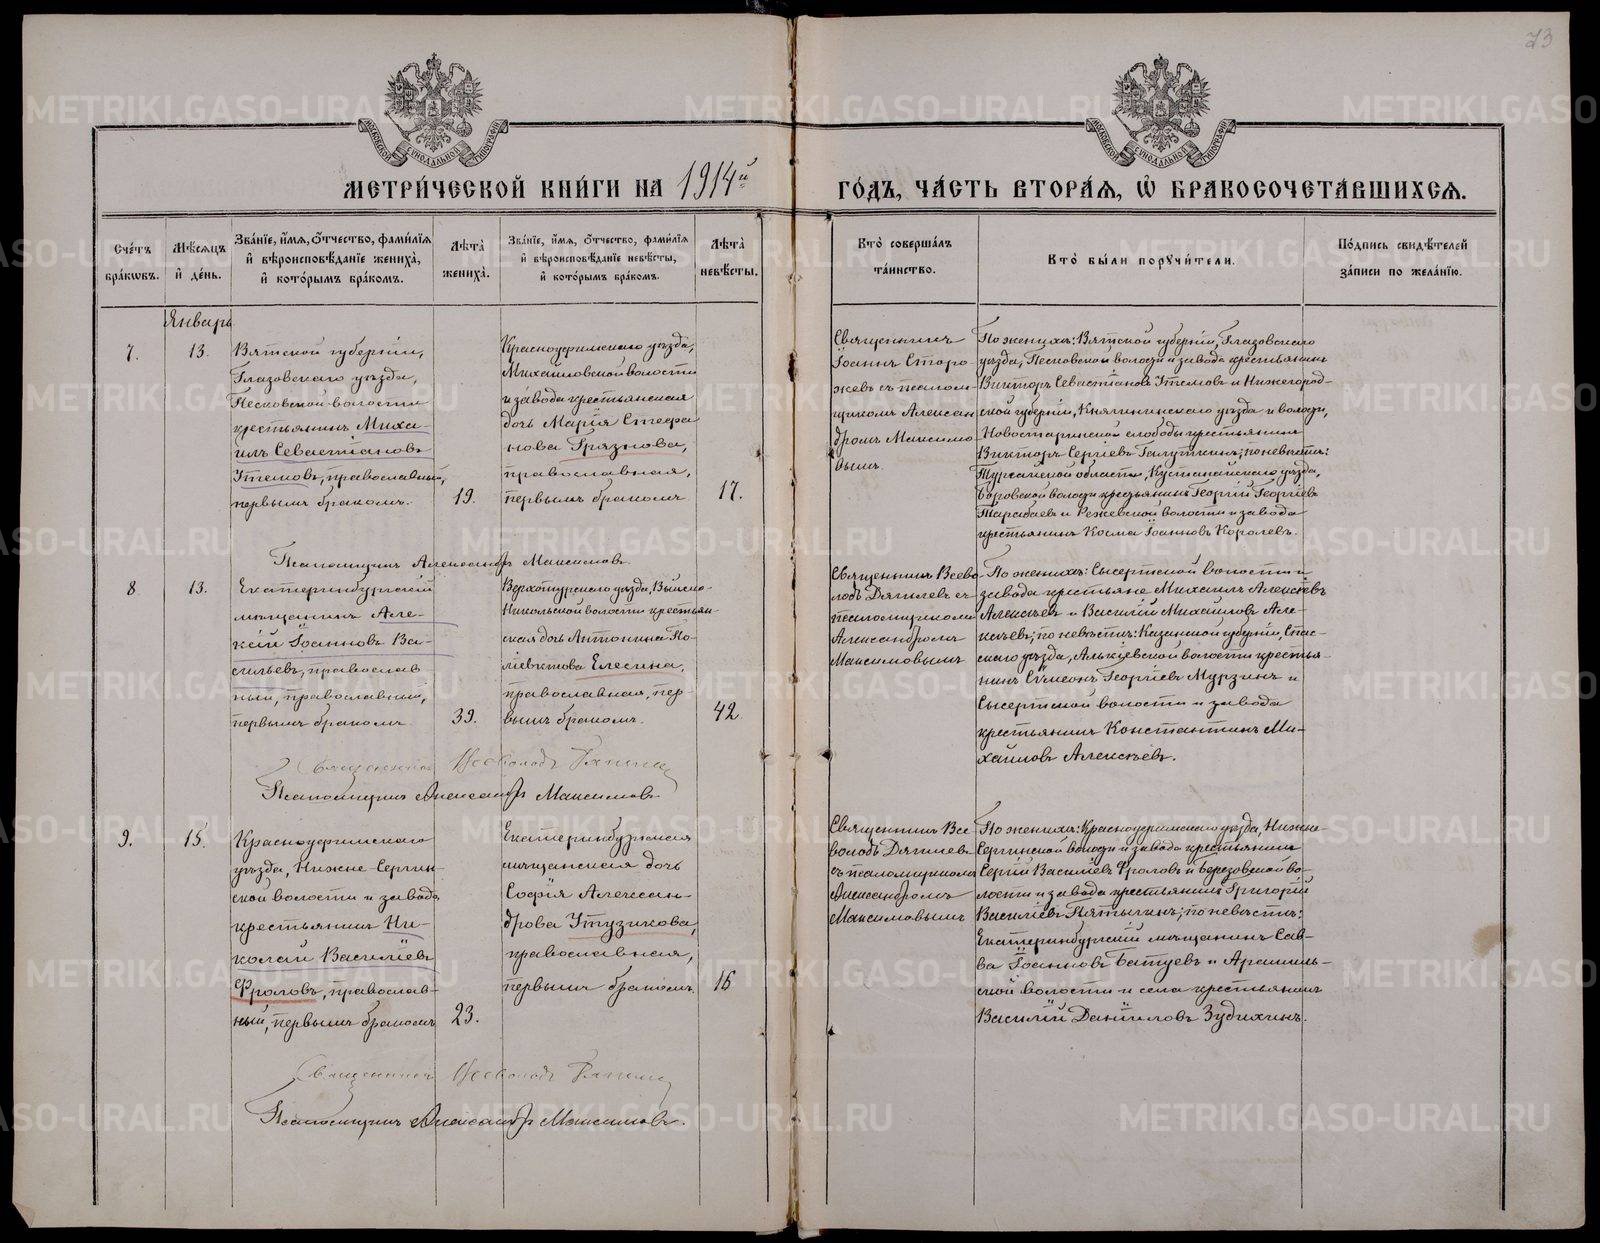 73
МОСКОВСКОЙ СѴНОДАЛЬНОЙ ТИПОГРАФІИ
МОСКОВСКОЙ СѴНОДАЛЬНОЙ ТИПОГРАФІИ
МЕТРИ́ЧЕСКОЙ КНИ́ГИ НА 1914й
ГО́ДЪ, ЧА́СТЬ ВТОРА́Я, Ѽ БРАКОСОЧЕТА́ВШИХСЯ.
Сче́тъ бра́кѡвъ.
Мѣ́сяцъ и҆ де́нь.
Зва́нїе, и҆́мя, ѻ҆́тчество, фами́лїя и҆ вѣроисповѣ́данїе жениха̀, и҆ кото́рымъ бра́комъ.
Лѣ́та жениха̀.
Зва́нїе, и҆́мя, ѻ҆́тчество, фами́лїя и҆ вѣроисповѣ́данїе невѣ́сты, и҆ кото́рымъ бра́комъ.
Лѣ́та невѣ́сты.
Кто̀ соверша́лъ та́инство.
Кто̀ бы́ли поручи́тели.
По́дпись свидѣ́телей за́писи по жела́нїю.
Январь
7.
13.
Вятской губерніи,
Глазовскаго уѣзда,
Песковской волости
крестьянинъ Миха-
илъ Севастіановъ
Утемовъ, православный,
первымъ бракомъ.
19.
Красноуфимскаго уѣзда,
Михайловской волости
и завода крестьянская
дочь Марія Стефа
нова Грязнова,
православная,
первымъ бракомъ
17.
Священникъ
Іоаннъ Сторо
жевъ съ псалом-
щикомъ Алексан
дромъ Максимо
вымъ.
По женихѣ: Вятской губерніи, Глазовскаго
уѣзда, Песковской волости и завода крестьянинъ
Викторъ Севастіановъ Утемовъ и Нижегород-
ской губерніи, Княгининскаго уѣзда и волости,
Новостаринской слободы крестьянинъ
Викторъ Сергіевъ Галуткинъ; по невѣстѣ:
Тургайской области, Кустанайскаго уѣзда,
Боровской волости крестьянинъ Георгій Георгіевъ
Тарабаевъ и Режевской волости и завода
крестьянинъ Косма Іоанновъ Королевъ.
Псаломщикъ Александръ Максимовъ.
8
13.
Екатеринбургскій
мѣщанинъ Але-
ксій Іоанновъ Ва-
сильевъ, православ
ный, православный,
первымъ бракомъ
39.
Верхотурскаго уѣзда, Выйско-
Никольской волости крестьян-
ская дочь Антонина По-
ліевктова Елесина,
православная, пер-
вымъ бракомъ.
42.
Священникъ Всево
лодъ Дягилевъ съ
псаломщикомъ
Александромъ
Максимовымъ
По женихѣ: Сысертской волости и
завода крестьяне Михаилъ Алексѣевъ
Алексѣевъ и Василій Михайловъ Але-
ксѣевъ; по невѣстѣ: Казанской губерніи, Спас-
скаго уѣзда, Алькіевской волости крестья-
нинъ Сѵмеонъ Георгіевъ Мурзинъ и
Сысертской волости и завода
крестьянинъ Константинъ Ми-
хайловъ Алексѣевъ.
Священникъ Всеволодъ
Псаломщикъ Александръ Максимовъ
9.
15.
Красноуфимскаго
уѣзда, Нижне-Сергин-
ской волости и завода
крестьянинъ Ни-
колай Василіевъ
Фроловъ, православ-
ный, первымъ бракомъ
23.
Екатеринбургская
мѣщанская дочь
Софія Алексан-
дрова Утузикова,
православная,
первымъ бракомъ.
16
Священникъ Все
володъ Дягилевъ
съ псаломщикомъ
Александромъ
Максимовымъ
По женихѣ: Красноуфимскаго уѣзда, Нижне-
Сергинской волости и завода крестьянинъ
Сергій Василіевъ Фроловъ и Березовской во-
лости и завода крестьянинъ Григорій
Василіевъ Пятыгинъ; по невѣстѣ:
Екатеринбургскій мѣщанинъ Сав-
ва Іоанновъ Батуевъ и Арамиль-
ской волости и села крестьянинъ
Василій Даніиловъ Зудихинъ.
Священникъ Всеволодъ
Псаломщикъ Александръ Максимовъ.
METRIKI.GASO-URAL.RU